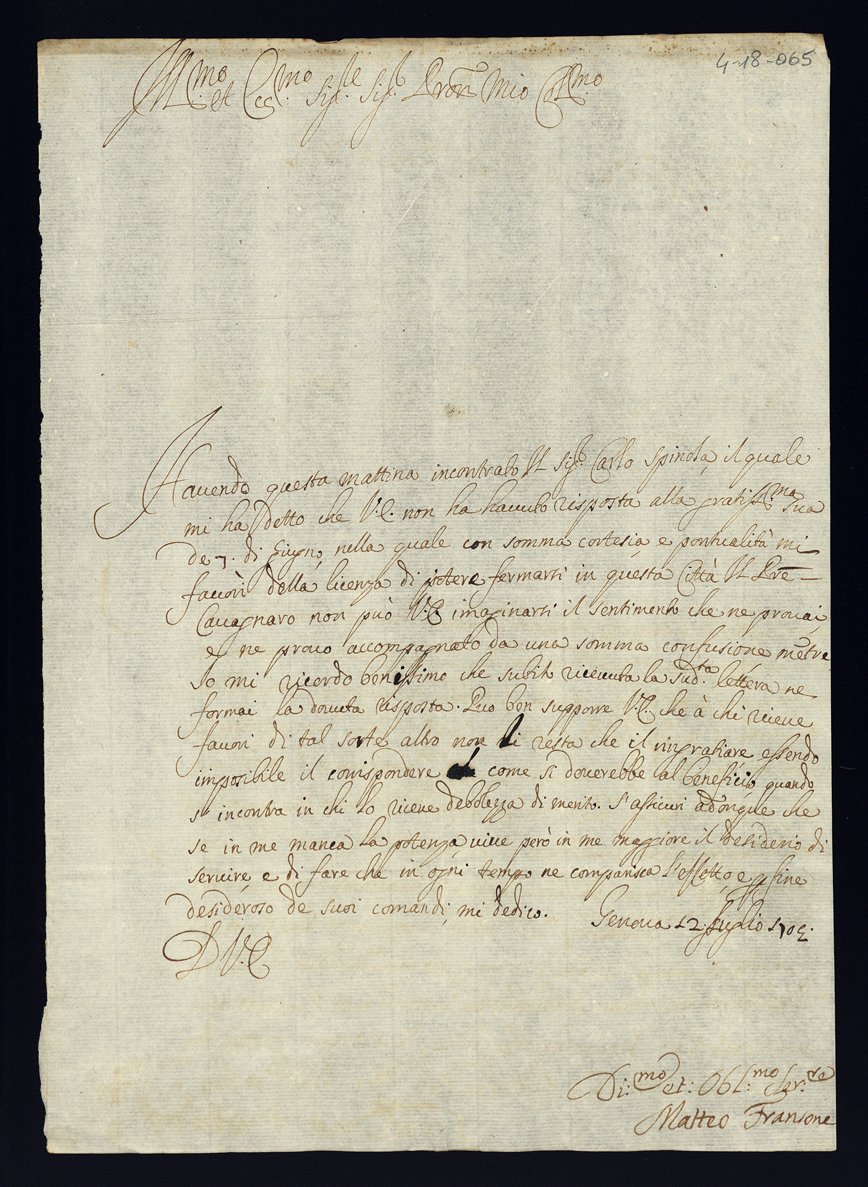 4-18-065
Ill.mo et Ecc.mo Sig.re Sig.r P̄ron Mio Coll.mo
Havendo questa mattina incontrato Il Sig.r Carlo Spinola, il quale
mi ha detto che V.E. non ha havuto risposta alla gratiss.ma sua
de 7. di Giugno, nella quale con somma cortesia e pontualità mi
favorì della licenza di potere fermarsi in questa Città Il P̄re
Cavagnaro non può V.E. imaginarsi il sentimento che ne provai,
e ne provo accompagnato da una somma confusione mētre
Io mi ricordo benissimo che subito ricevuta la sud.ta lettera ne
formai la dovuta risposta. Può ben supporre V.E. che à chi riceve
favori di tal sorte altro non li resta che il ringratiare essendo
imposibile il corrispondere come si doverebbe al beneficio quando
s'incontra in chi lo riceve debolezza di merito. S'assicuri adonque che
se in me manca la potenza vive però in me maggiore il desiderio di
servire, e di fare che in ogni tempo ne comparisca l'effetto, e p fine
desideroso de suoi comandi, mi dedico. Genova 12 Luglio
D V.E.
Di.mo et: Obl.mo Ser.re
Matteo Fransone